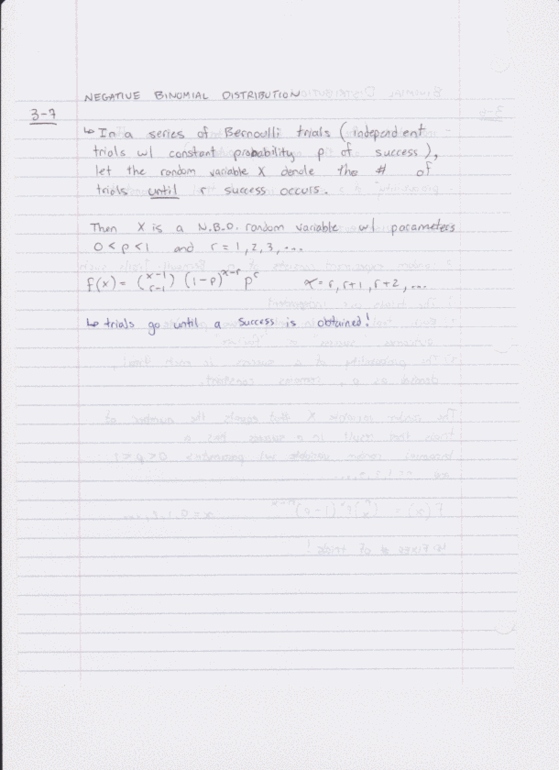 NEGATIVE BINOMIAL DISTRIBUTION
3-7
↳ In a series of Bernoulli trials (independent
trials w/ constant probability p of success),
let the random variable X denote the # of
trials until r success occurs.
Then X is a N.B.D. random variable w/ parameters
0<p<1 and r = 1,2,3,...
f(x) = (x-1 r-1) (1-p)^x-r p^r x = r, r+1, r+2, ...
↳ trials go until a success is obtained!